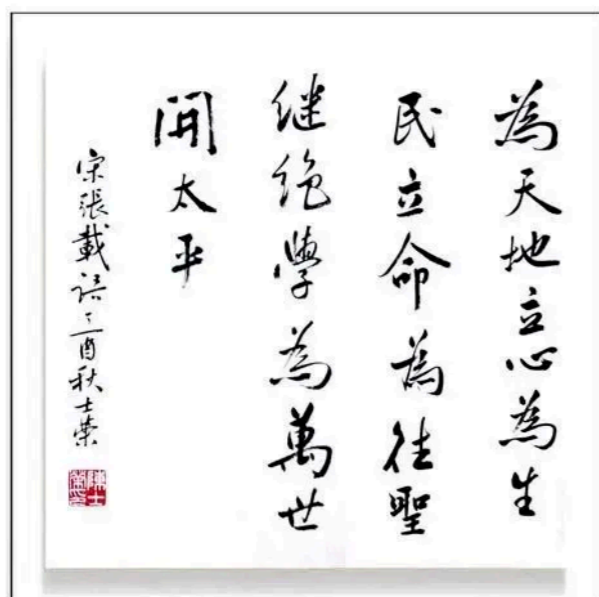 為天地立心為生
民立命為往聖
继絶學為萬世
開太平
宋張載語丁酉秋士榮
陳士榮印